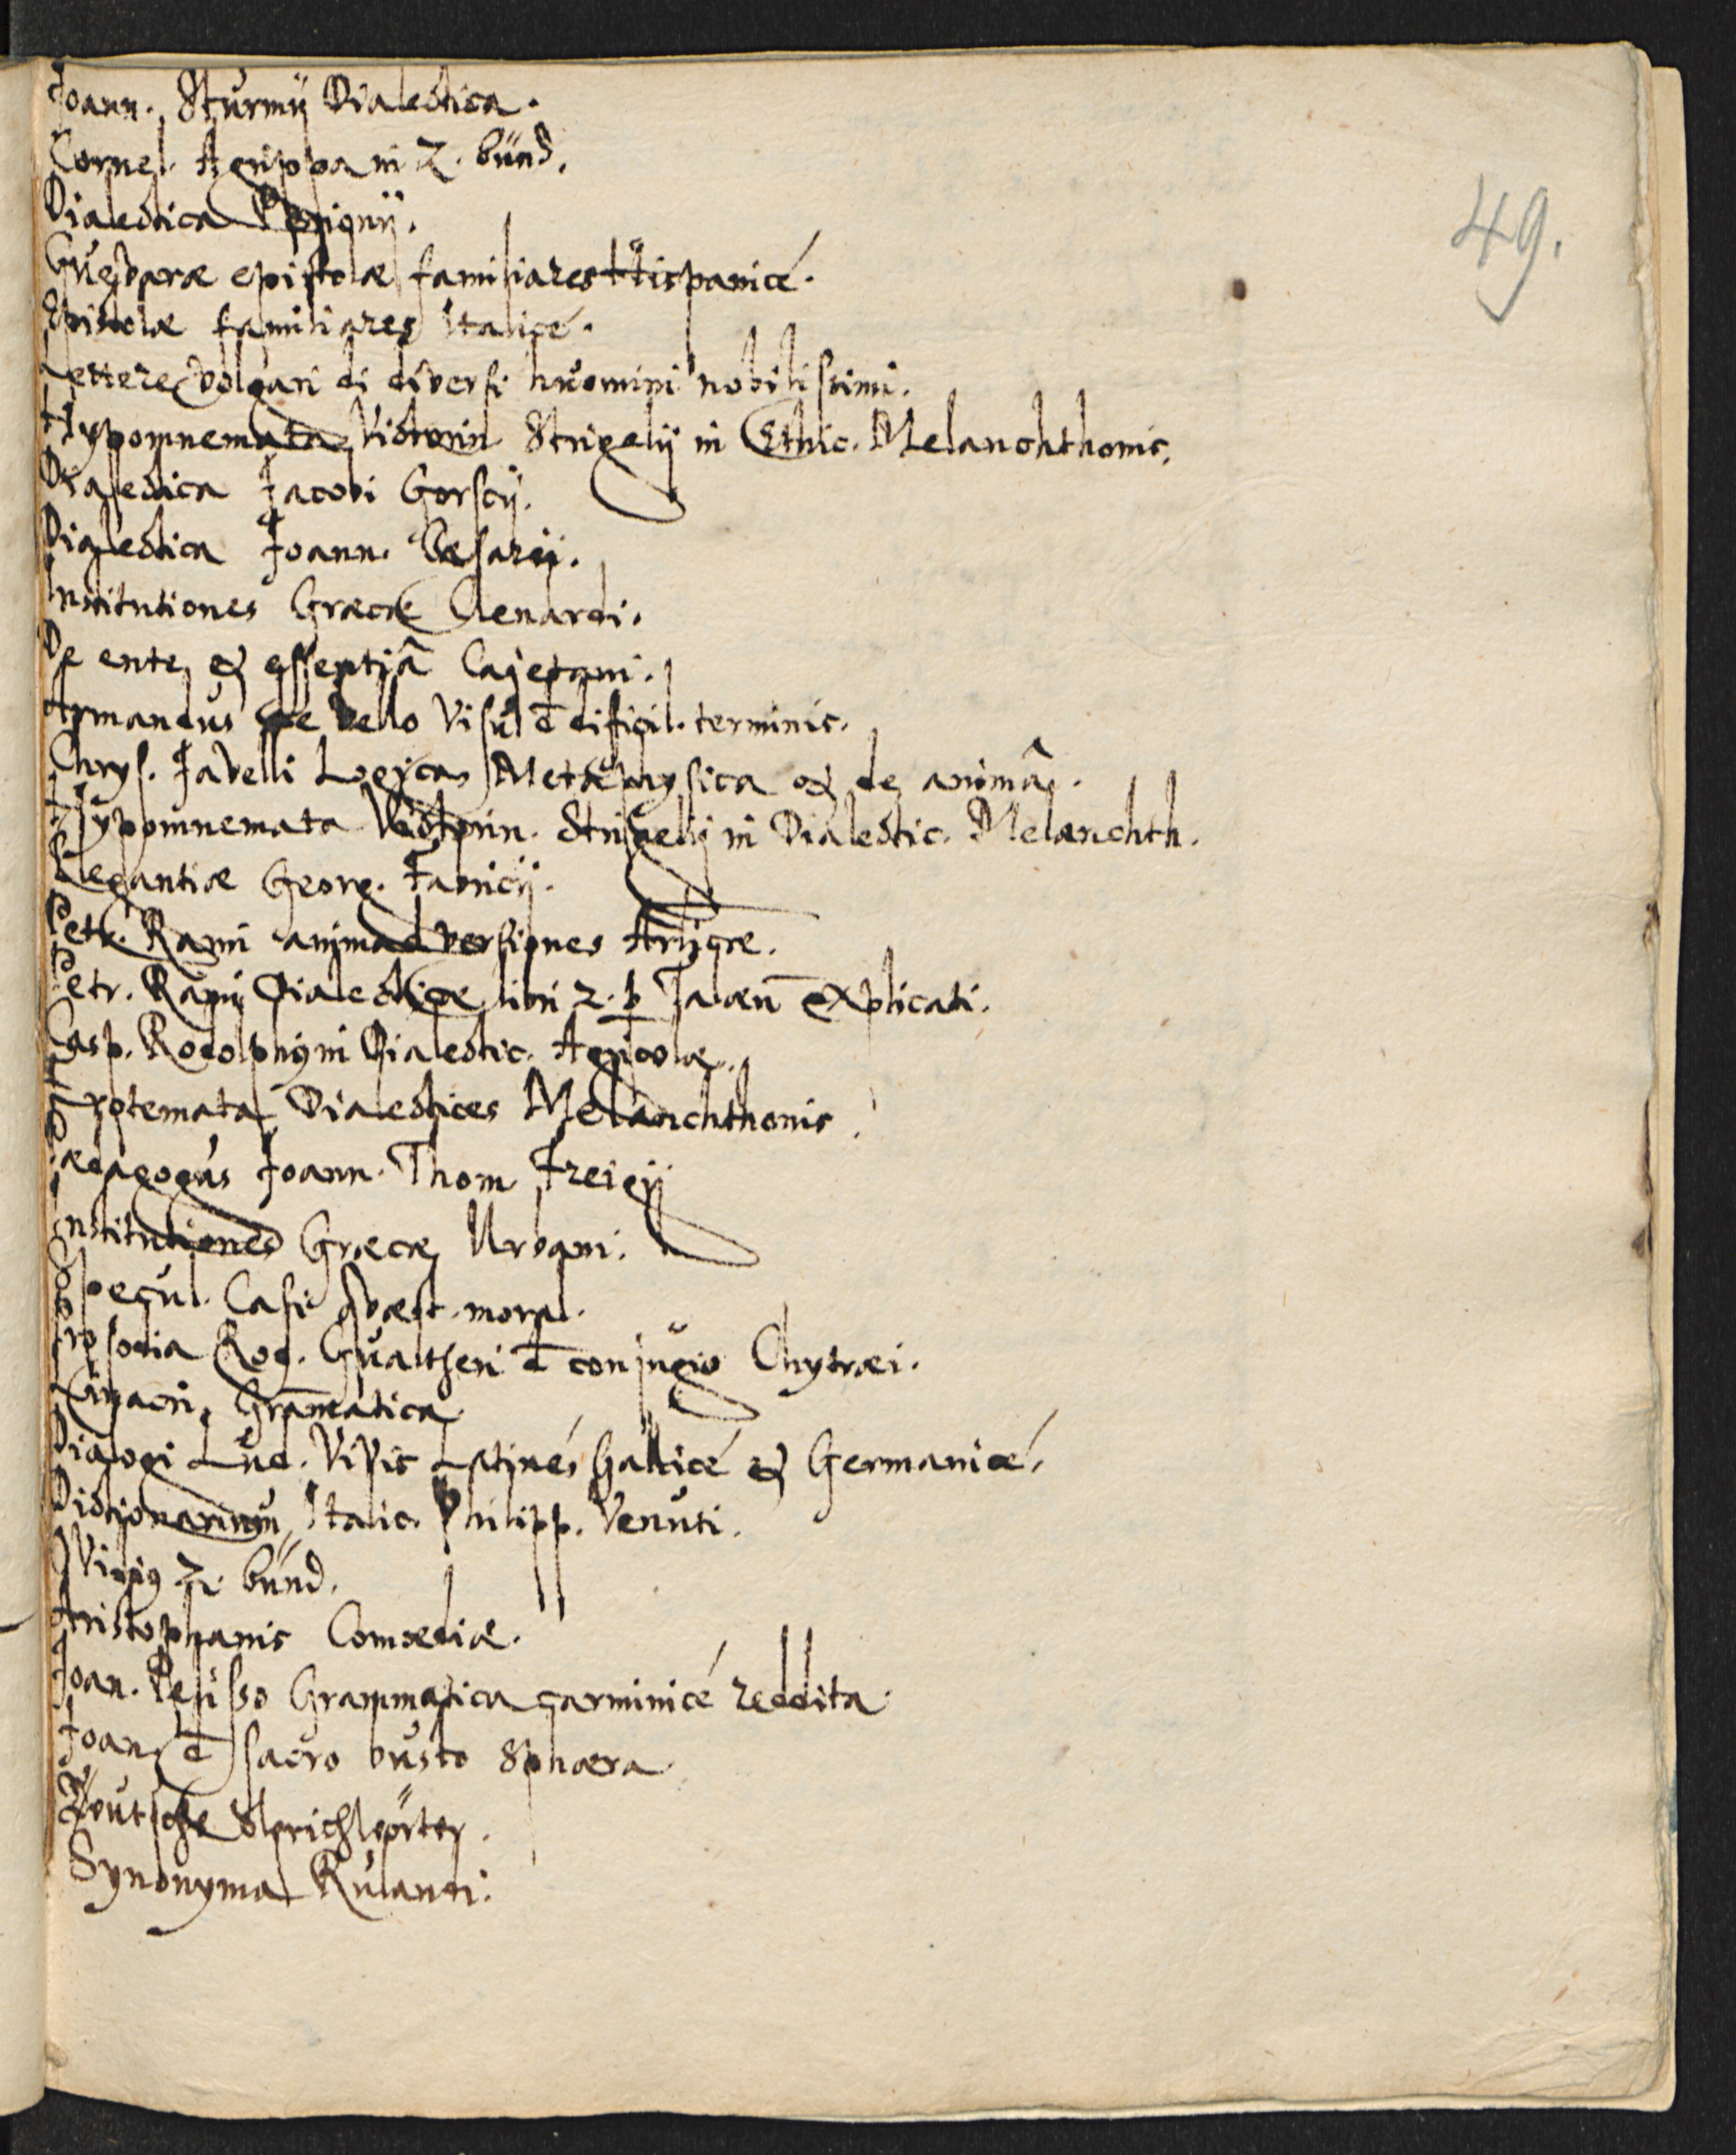 Joann. Sturmij Dialectica.
Cornel. Agrippa in 2. bünd.
Dialectica
49.
Guevaræ epistolæ familiares Hispanicé.
Epistolæ familiares Italicé.
Lettere volgari di diversi huomini nobilissimi.
Hypomnemata Victorin Strigelij in Ethic. Melanchthonis.
Dialectica Jacobi Gorscij.
Dialectica Joann. Cæsarij.
Institutiones Græcæ Clenardi.
De ente & essentiâ Cajetani.
Armandus de bello visu d̄ dificil. terminis.
Chrys. Javelli Logica, Metaphysica & de animâ.
Hypomnemata Victorin. Strigelij in Dialectic. Melanchth.
Elegantiæ Georg. Fabricij.
Petr. Rami animadversiones
Petr. Rami Dialecticæ libri 2. p explicati.
Casp. Rodolphij in Dialectic. Agricolæ.
Erotemata Dialectices Melanchthonis.
Pædagogus Joann. Thom Freigij
Institutiones Græcæ Urbani.
Specul. Casi qvæst. moral.
Prosodia Rod. Gualtheri d̄ conjugio Chytræi.
Linacri Gram̄atica.
Dialogi Lud. Vivis Latiné, Gallicé & Germanicé.
Dictionarium Italic. Philipp. Venuti.
2. bünd.
Aristophanis Comœdiæ.
Joan. Grammatica carminicé reddita.
Joan. d̄ sacro busto Sphæra.
Teutsche Sprichwörter.
Synonyma Rulandi.